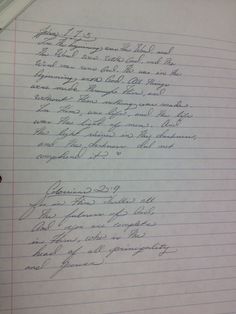 In the beginning, was the Word and
the Word was with God, and the
Word was was God. He was in the
beginning, with God. All things
were made through Him, and
without Him nothing was made.
In Him, was life, and the life
was the light of men. And
the light shines in the darkness,
and the darkness did not
comprehend it.
Colossians 2:9
for in Him dwells all
the fulness of God,
And you are complete
in Him, who is the
head of all principality
and Power